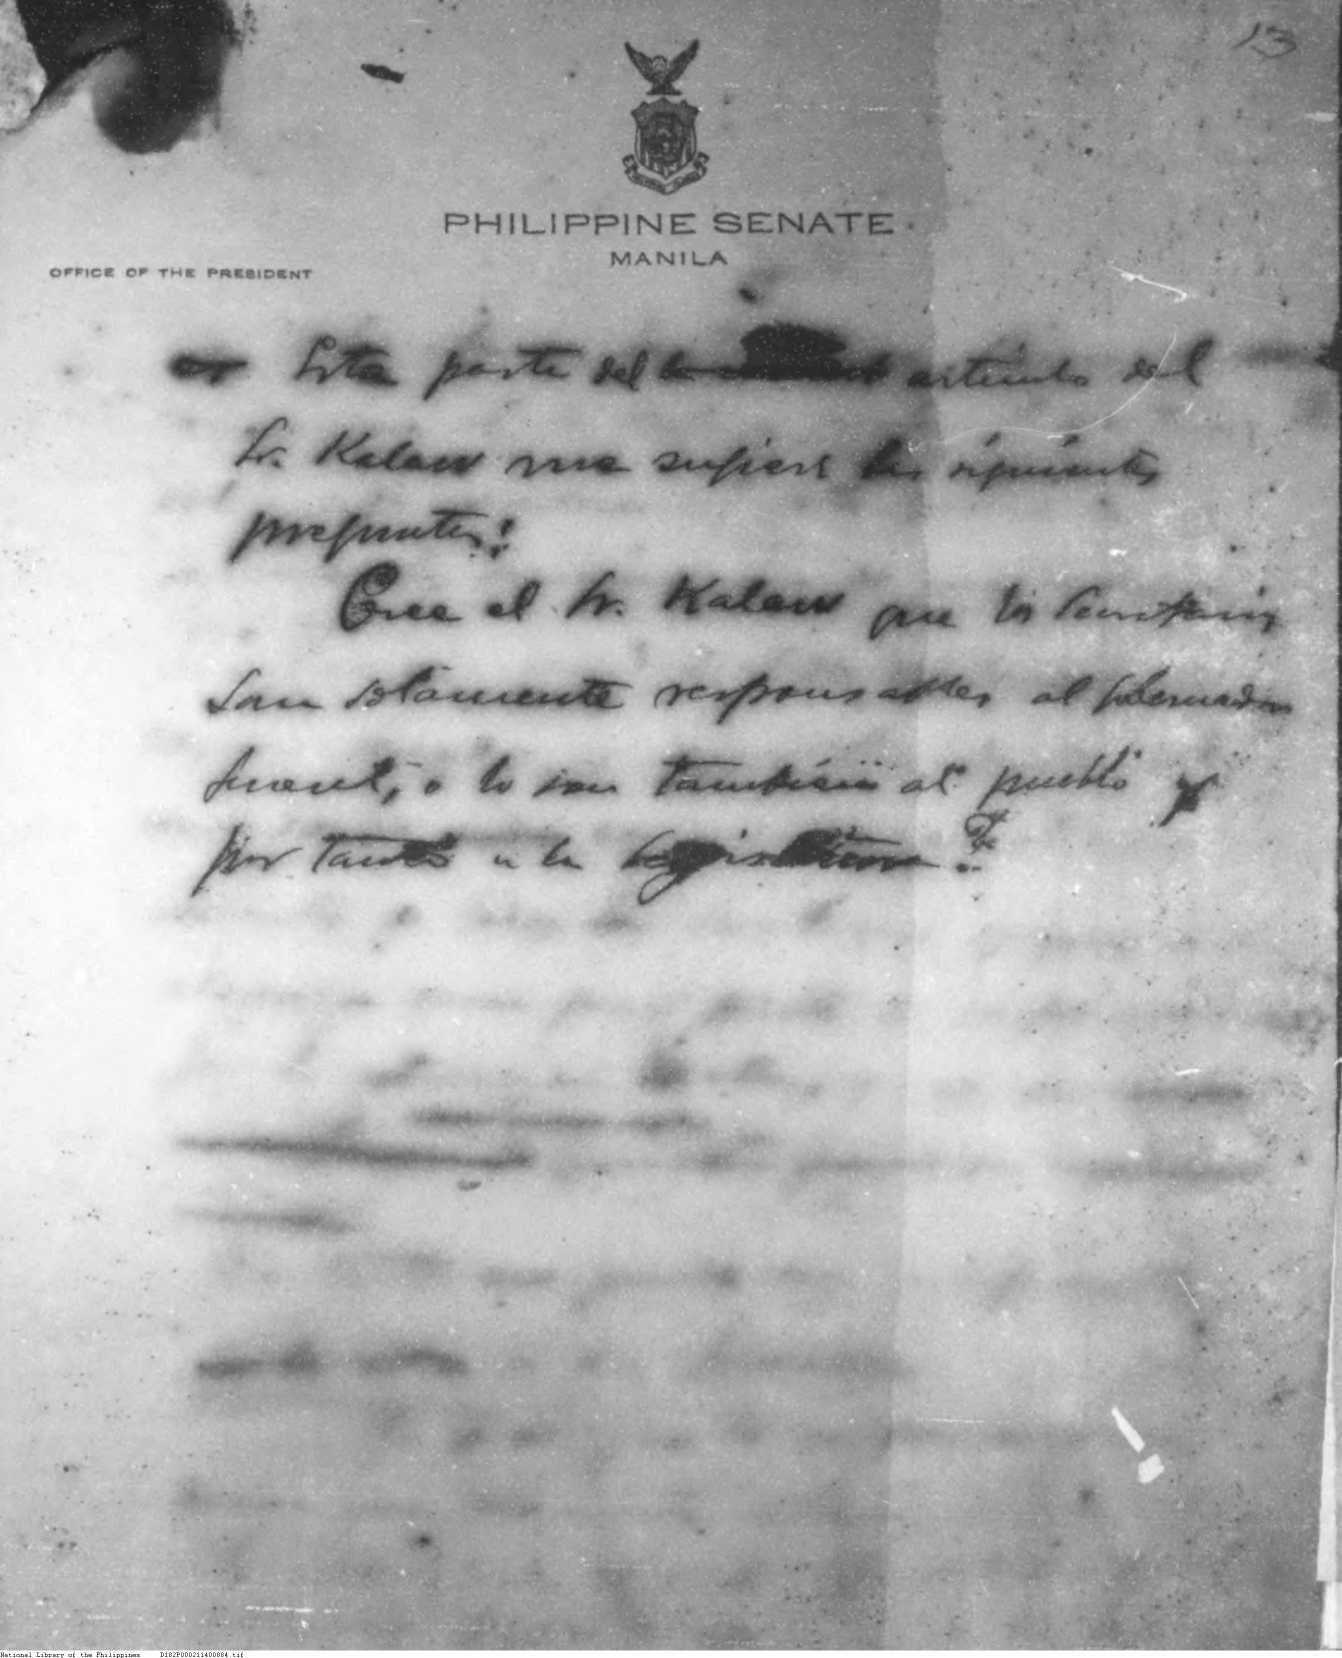 13
PHILIPPINE SENATE
MANILA
OFFICE OF THE PRESIDENT
Esta parte del articulo del
Sr. Kalaw me sugiere las siguientes
preguntas:
Cree el Sr. Kalaw que los Secretarios
son solamente responsables al gobernador
general, o lo son también al pueblo y
por tanto a la Legislatura?
National Library of the Philippines D182P000211400084.tif